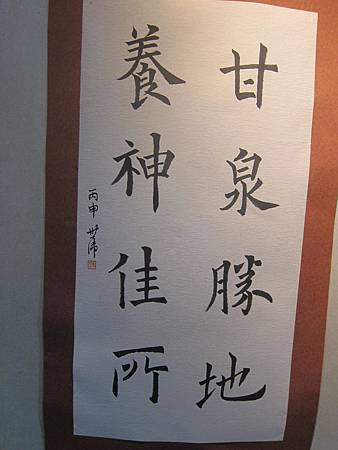 甘泉勝地
養神佳所
丙申 世沛